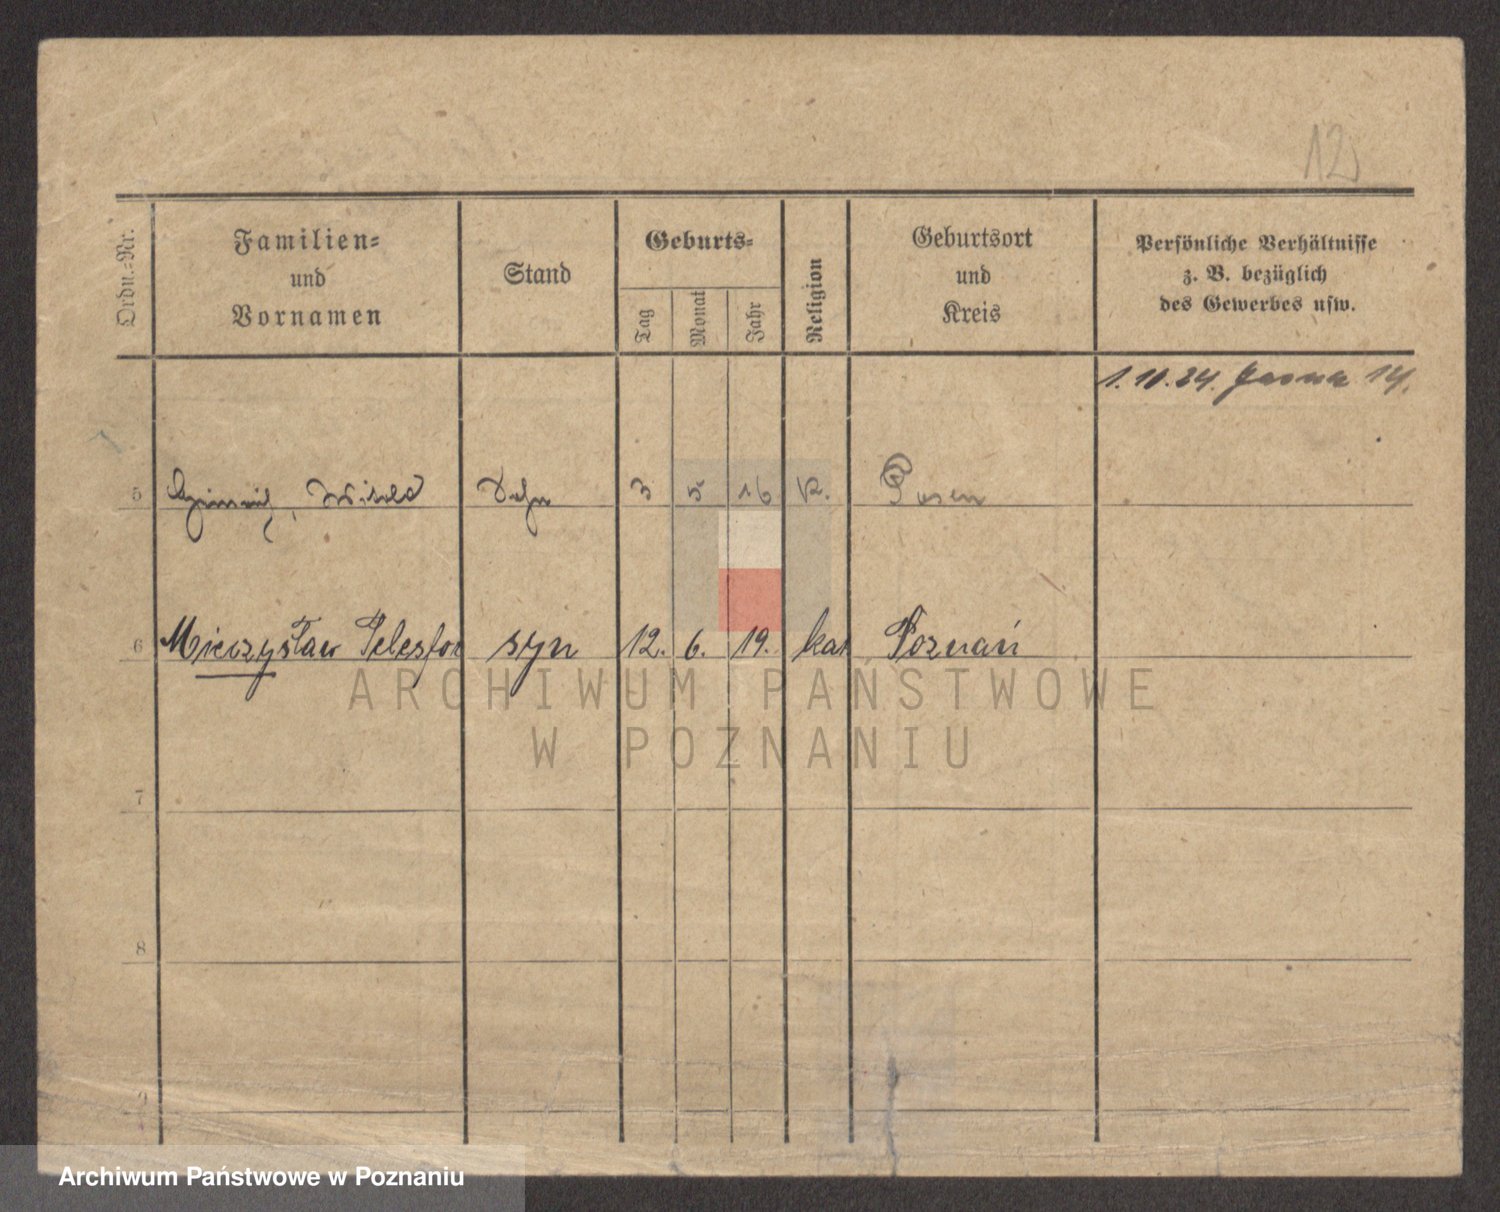 12
Ordn.-Nr.
Familien-
und
Vornamen
Stand
Geburts-
Tag
Monat
Jahr
Religion
Geburtsort
und
Kreis
Persönliche Verhältnisse
z. B. bezüglich
des Gewerbes usw.
1. 10. 24. Jasna 14.
5 Heinrich, Witold Sohn 3 5 16 K. Posen
6 Mieczysław Telesfor syn 12. 6. 19. kat Poznań
ARCHIWUM PAŃSTWOWE
W POZNANIU
7
8
9
Archiwum Państwowe w Poznaniu